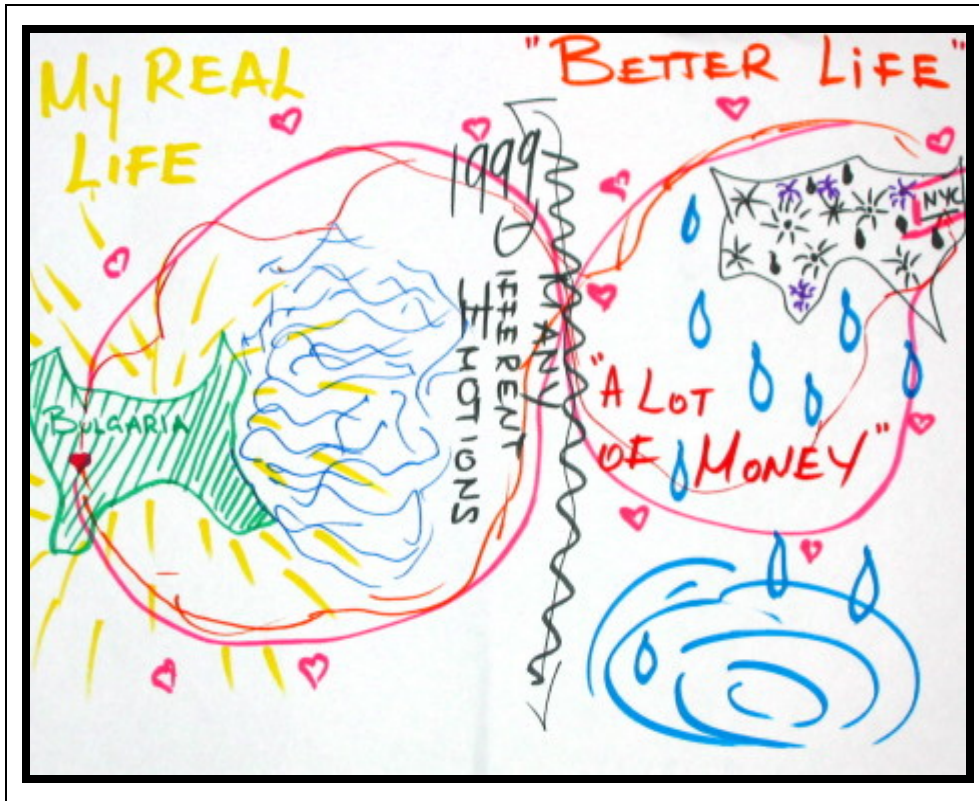 My REAL
LIFE
"BETTER LiFE"
1999
MANY
DIFFERENT
EMOTIONS
NYC
BULGARIA
"A LOT
OF MONEY"